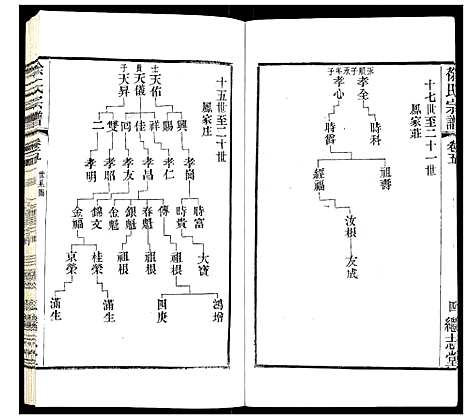 徐氏宗譜 卷五
四 繼志堂
十七世至二十一世
鳳家莊
承子 承子
孝全 孝心
時科 時當
祖壽 經福
汝根
友成
十五世至二十世
鳳家庄
天佑 天儀 天昇
興 賜 祥 佳 同 雙 二
孝崗 孝仁 孝昌 孝友 孝昭 孝明
時富 時貴 傳 春魁 銀魁 金魁 錦文 金福
大寶 祖根 祖根 祖根 桂榮 京榮
鴻增 四庚 滿生 滿生